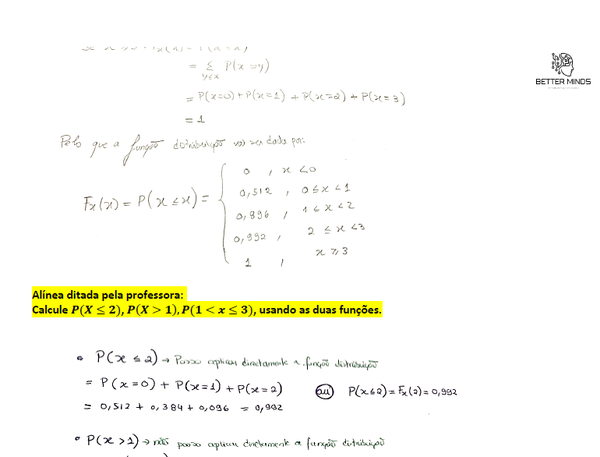 BETTER MINDS
= Σ P(x=y)
y≤x
= P(x=0) + P(x=1) + P(x=2) + P(x=3)
= 1
Pelo que a função distribuição vai ser dada por:
Fx(x) = P(X ≤ x) =
0 , x < 0
0,512 , 0 ≤ x < 1
0,896 , 1 ≤ x < 2
0,992 , 2 ≤ x < 3
1 , x ≥ 3
Alínea ditada pela professora:
Calcule P(X ≤ 2), P(X > 1), P(1 < x ≤ 3), usando as duas funções.
• P(x ≤ 2) → Posso aplicar diretamente a função distribuição
= P(x=0) + P(x=1) + P(x=2) ou P(x≤2) = Fx(2) = 0,992
= 0,512 + 0,384 + 0,096 = 0,992
• P(x > 1) → não posso aplicar diretamente a função distribuição